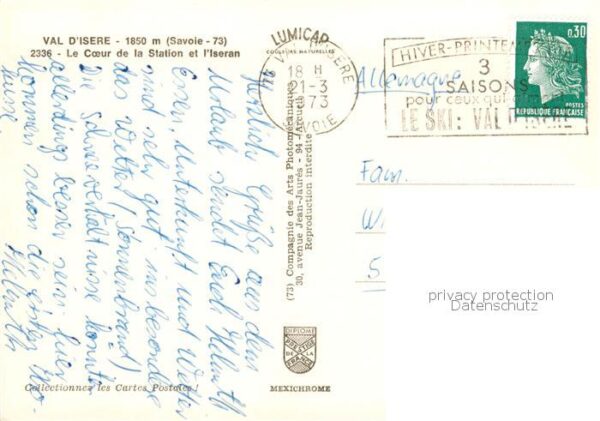 VAL D'ISERE - 1850 m (Savoie - 73)
2336 - Le Cœur de la Station et l'Iseran
LUMICAP
COULEURS NATURELLES
VAL D'ISERE
18 H
21-3
1973
SAVOIE
HIVER-PRINTEMPS
3
SAISONS
pour ceux qui
LE SKI: VAL D'ISERE
0,30
POSTES
REPUBLIQUE FRANÇAISE
Allemagne
Fam.
W
5
Herzliche Grüße aus dem
Urlaub sendet Euch Helmuth
Essen, Unterkunft und Wetter
sind sehr gut insbesondere
das Wetter (Sonnenbrand)
Die Schneeverhältnisse könnten
allerdings besser sein. Hier
kommen schon die ersten
heraus
Helmuth
(73) Compagnie des Arts Photomécaniques
30, avenue Jean-Jaurès - 94 - Arcueil
Reproduction interdite
DIPLOME
PRESTIGE
DE LA
FRANCE
MEXICHROME
Collectionnez les Cartes Postales !
privacy protection
Datenschutz